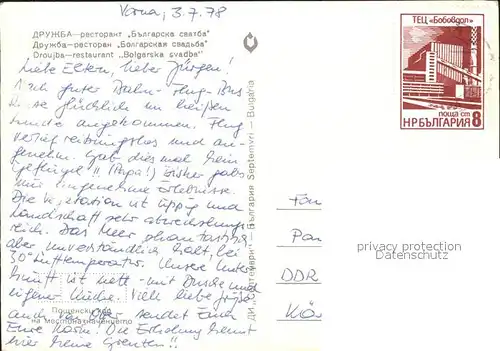 Varna, 3.7.78
ДРУЖБА—ресторант „Българска сватба"
Дружба—ресторан „Болгарская свадьба"
Droujba—restaurant „Bolgarska svadba"
Liebe Eltern, lieber Jürgen!
Nach guter Bahn-Flug-Bus
Reise glücklich im heißen
angekommen. Flug
verlief reibungslos und an-
genehm. Gab diesmal kein
Geflügel!! (Papa!) Bisher gabs
nur angenehme Erlebnisse.
Die Vegetation ist üppig und
Landschaft sehr abwechslungs-
reich. Das Meer phantastisch
aber unverständlich kalt, bei
30° Lufttemperatur. Unsere Unter-
kunft ist nett - mit Dusche und
eigener Küche. Viele liebe Grüße
auch von sendet Euch
Eure Karin. Die Erholung kennt
hier keine Grenzen!!
Пощенски код
на местоназначението
ДИ „Септември" — България Septemvri — Bulgaria
ТЕЦ „Бобовдол"
поща ст 8
НР БЪЛГАРИЯ
Fam
Pan
DDR
Kö
privacy protection
Datenschutz